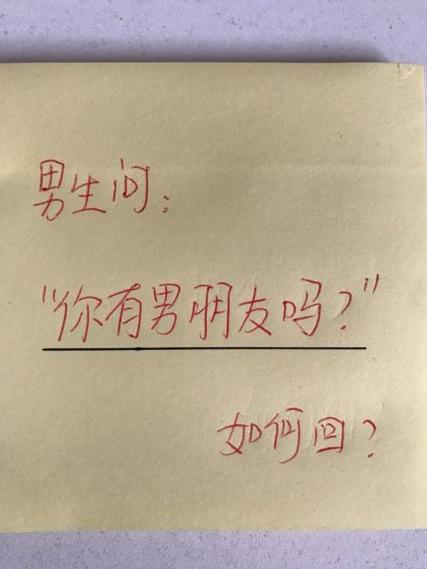 男生问：
"你有男朋友吗？"
如何回？